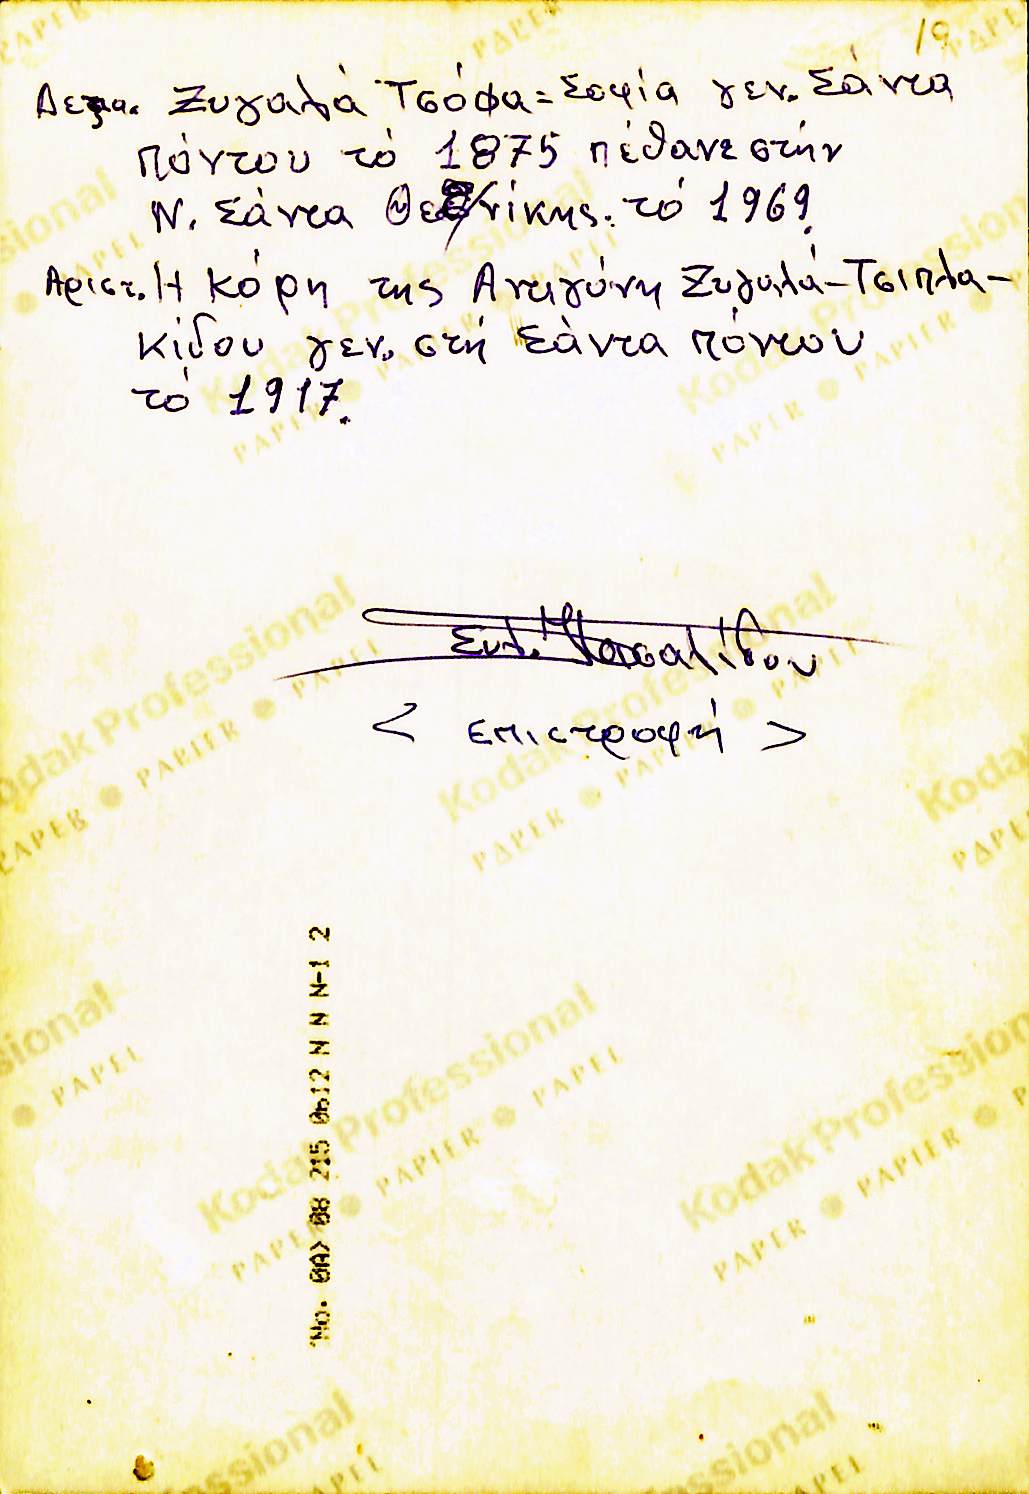 19
Δεξια. Ζυγαλά Τσόφα = Σοφία γεν. Σάντα
Πόντου τό 1875 πέθανε στήν
Ν. Σάντα Θεσ/νίκης. τό 1969.
Αριστ. Η κόρη της Αντιγόνη Ζυγαλά-Τσιπλα-
κίδου γεν. στή Σάντα πόντου
τό 1917.
Συλ.
< επιστροφή >
No. 0A> 08 215 0612 N N N-1 2
Kodak Professional
PAPER ● PAPIER ● PAPEL